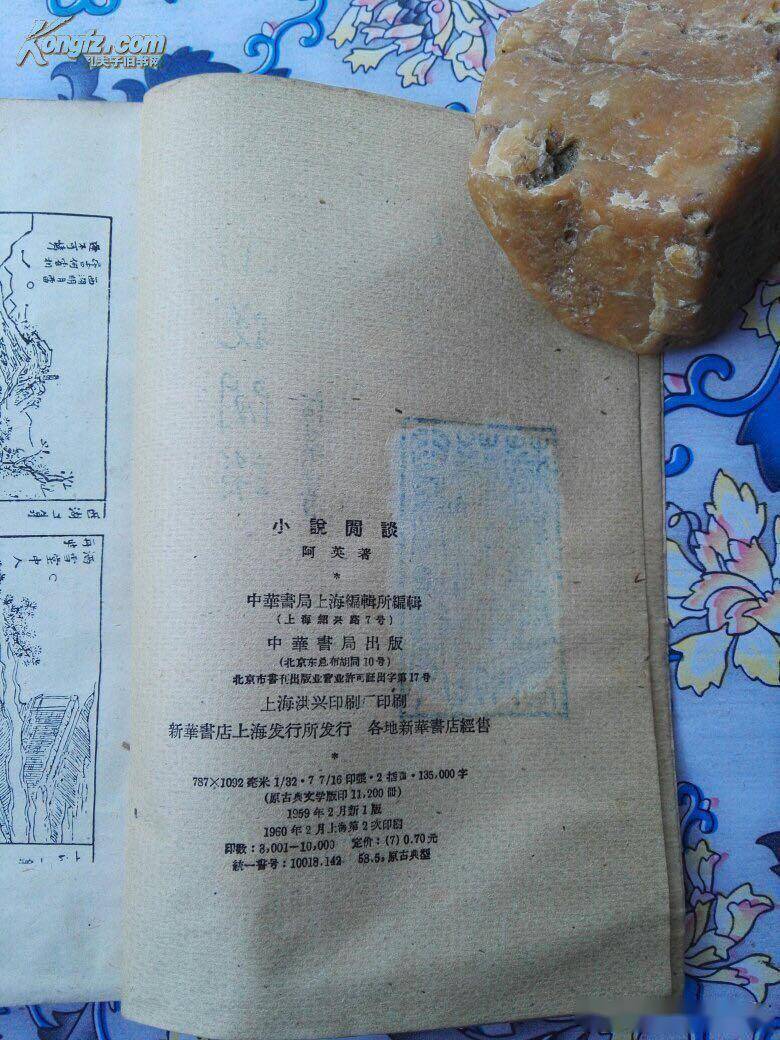 Kongfz.com
孔夫子旧书网
小說閒談
阿英著
*
中華書局上海編輯所編輯
(上海紹兴路7号)
中華書局出版
(北京东总布胡同10号)
北京市書刊出版业营业許可証出字第17号
上海洪兴印刷厂印刷
新華書店上海发行所发行 各地新華書店經售
*
787×1092 毫米 1/32·7 7/16 印張·2 插頁·135,000 字
(原古典文学版印11,200册)
1959年2月新1版
1960年2月上海第2次印刷
印数:3,001—10,000 定价:(7) 0.70元
統一書号:10018.142 58.5,原古典型
西湖明月
酒雪堂中人